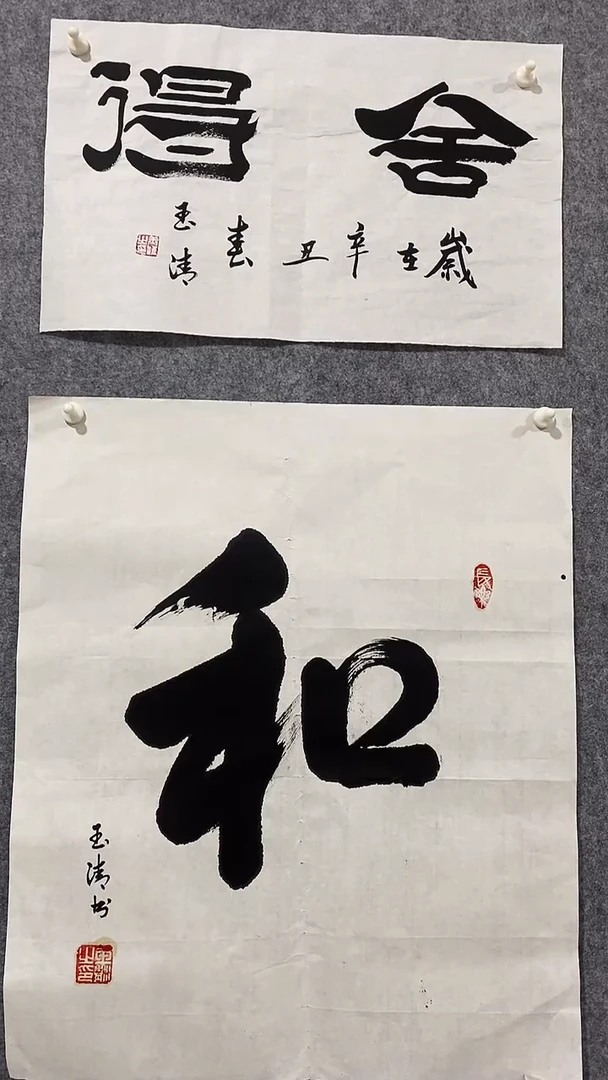 舍得
歲在辛丑春
玉清
和
玉清书